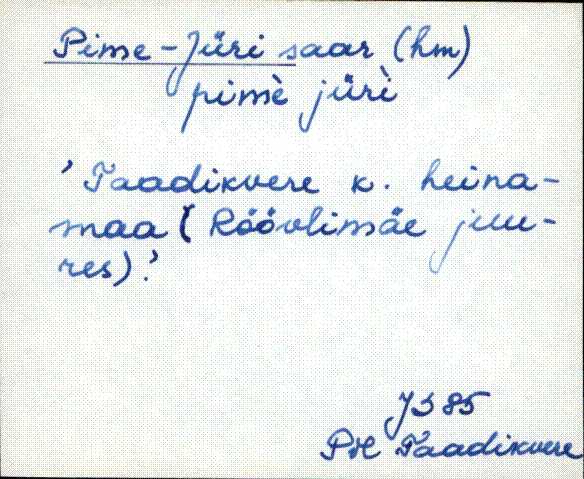 Pime-Jüri saar (hm)
pimè jürì
'Taadikvere k. heina-
maa (Röövlimäe juu-
res).'
JS 85
Plt Taadikvere